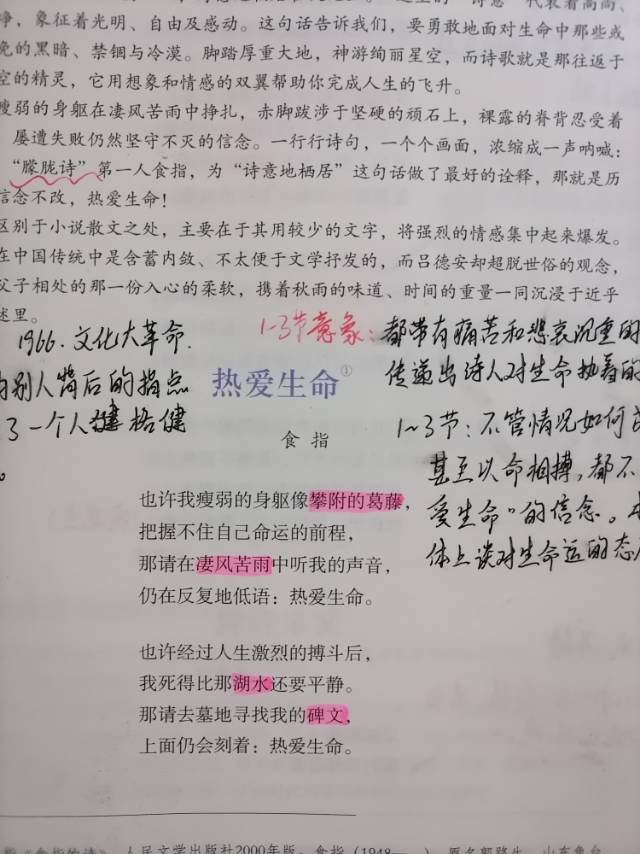 净，象征着光明、自由及感动。这句话告诉我们，要勇敢地面对生命中那些或
免的黑暗、禁锢与冷漠。脚踏厚重大地，神游绚丽星空，而诗歌就是那往返于
空的精灵，它用想象和情感的双翼帮助你完成人生的飞升。
瘦弱的身躯在凄风苦雨中挣扎，赤脚跋涉于坚硬的顽石上，裸露的脊背忍受着
屡遭失败仍然坚守不灭的信念。一行行诗句，一个个画面，浓缩成一声呐喊：
“朦胧诗”第一人食指，为“诗意地栖居”这句话做了最好的诠释，那就是历
信念不改，热爱生命！
区别于小说散文之处，主要在于其用较少的文字，将强烈的情感集中起来爆发。
在中国传统中是含蓄内敛、不太便于文学抒发的，而吕德安却超脱世俗的观念，
父子相处的那一份入心的柔软，携着秋雨的味道、时间的重量一同沉浸于近乎
述里。
1966.文化大革命.
1-3节意象：都带有痛苦和悲哀沉重的
别人背后的指点
热爱生命①
传递出诗人对生命执着的
3一个人 格健
食指
1~3节：不管情况如何
甚至以命相搏，都不
爱生命”的信念。
体上谈对生命运的态
也许我瘦弱的身躯像攀附的葛藤，
把握不住自己命运的前程，
那请在凄风苦雨中听我的声音，
仍在反复地低语：热爱生命。
也许经过人生激烈的搏斗后，
我死得比那湖水还要平静。
那请去墓地寻找我的碑文，
上面仍会刻着：热爱生命。
人民文学出版社2000年版。食指（1948— ），原名郭路生，山东鱼台